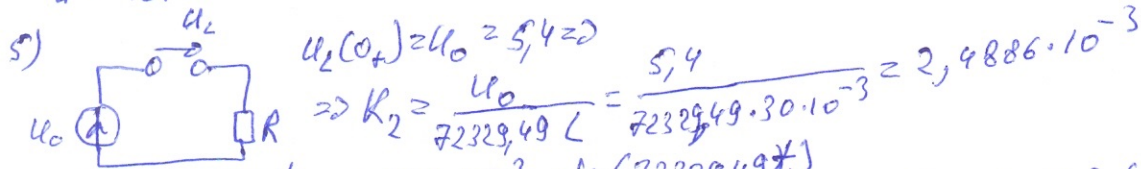 u_L
5) u_L(0₊) = u₀ = 5,4 =>
=> K₂ = u₀ / 72329,49 L = 5,4 / 72329,49·30·10⁻³ = 2,4886·10⁻³
u₀ R